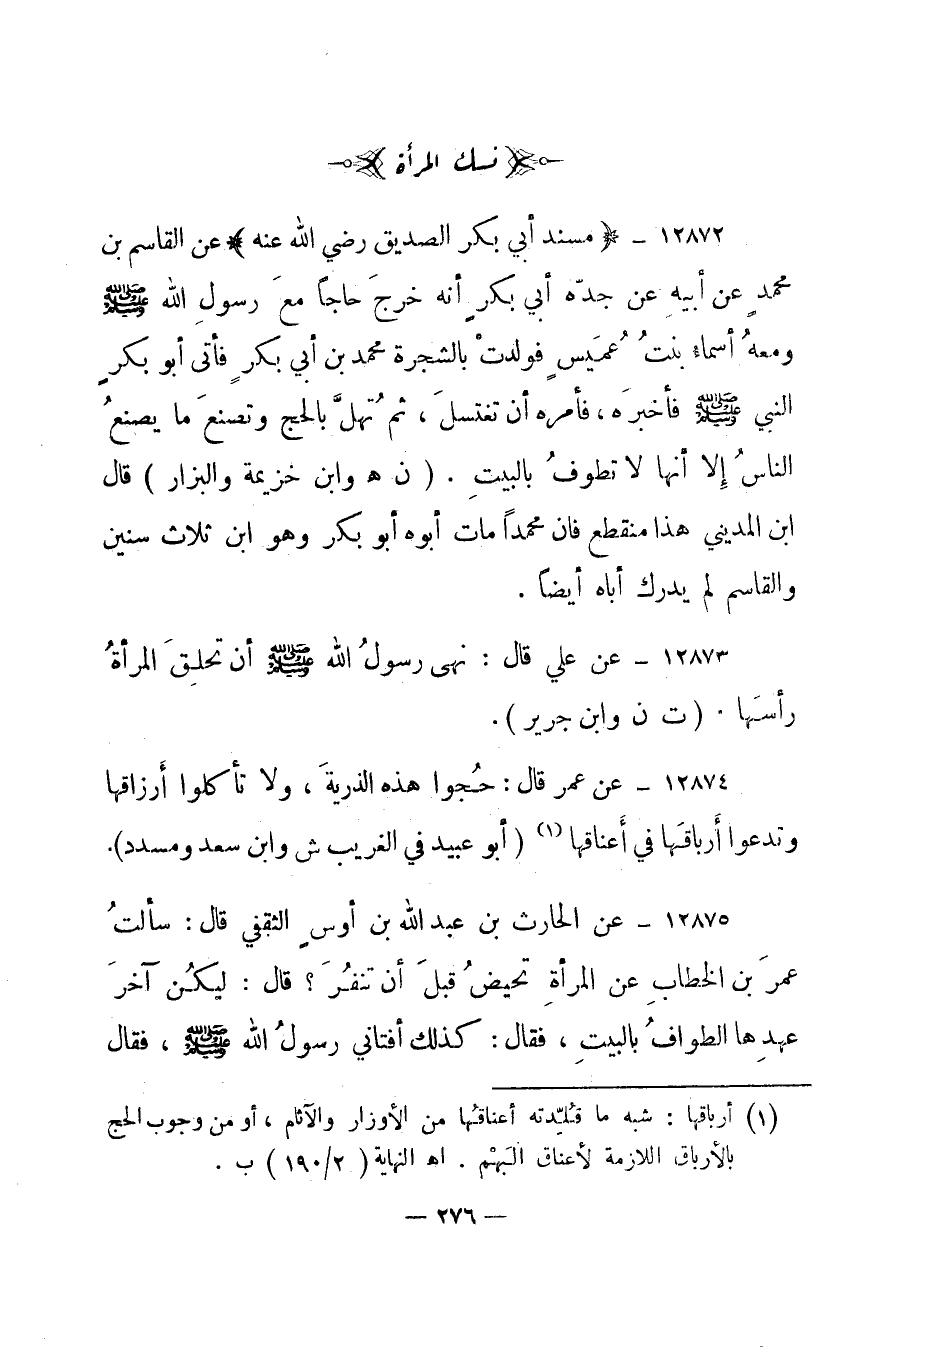 نسك المرأة
١٢٨٧٢ ـ ﴿ مسند أبي بكر الصديق رضي الله عنه ﴾ عن القاسم بن
محمدٍ عن أبيهِ عن جدّه أبي بكرٍ أنه خرجَ حاجاً معَ رسولِ الله ﷺ
ومعهُ أسماء بنتُ عُمَيسٍ فولدتْ بالشجرة محمد بن أبي بكرٍ فأتى أبو بكرٍ
النبي ﷺ فأخبرَه ، فأمره أن تغتسلَ ، ثم تُهلَّ بالحج وتصنعَ ما يصنعُ
الناسُ إلا أنها لا تطوفُ بالبيتِ . ( ن ه وابن خزيمة والبزار ) قال
ابن المديني هذا منقطع فان محمداً مات أبوه أبو بكر وهو ابن ثلاث سنين
والقاسم لم يدرك أباه أيضاً .
١٢٨٧٣ ـ عن علي قال : نهى رسولُ الله ﷺ أن تحلقَ المرأةُ
رأسَها . ( ت ن وابن جرير ) .
١٢٨٧٤ ـ عن عمر قال : حُجوا هذه الذريةَ ، ولا تأكلوا أرزاقها
وتدعوا أرباقَها في أعناقها (١) ( أبو عبيد في الغريب ش وابن سعد ومسدد).
١٢٨٧٥ ـ عن الحارث بن عبد الله بن أوسٍ الثقفي قال : سألتُ
عمرَ بن الخطابِ عن المرأةِ تحيضُ قبلَ أن تنفُرَ ؟ قال : ليكُن آخرَ
عهدِها الطوافُ بالبيتِ ، فقال : كذلك أفتاني رسولُ الله ﷺ ، فقال
(١) أرباقها : شبه ما قُلِّدته أعناقُها من الأوزار والآثام ، أو من وجوب الحج
بالأرباق اللازمة لأعناق البَهْم . اه النهاية ( ١٩٠/٢ ) ب .
— ٢٧٦ —